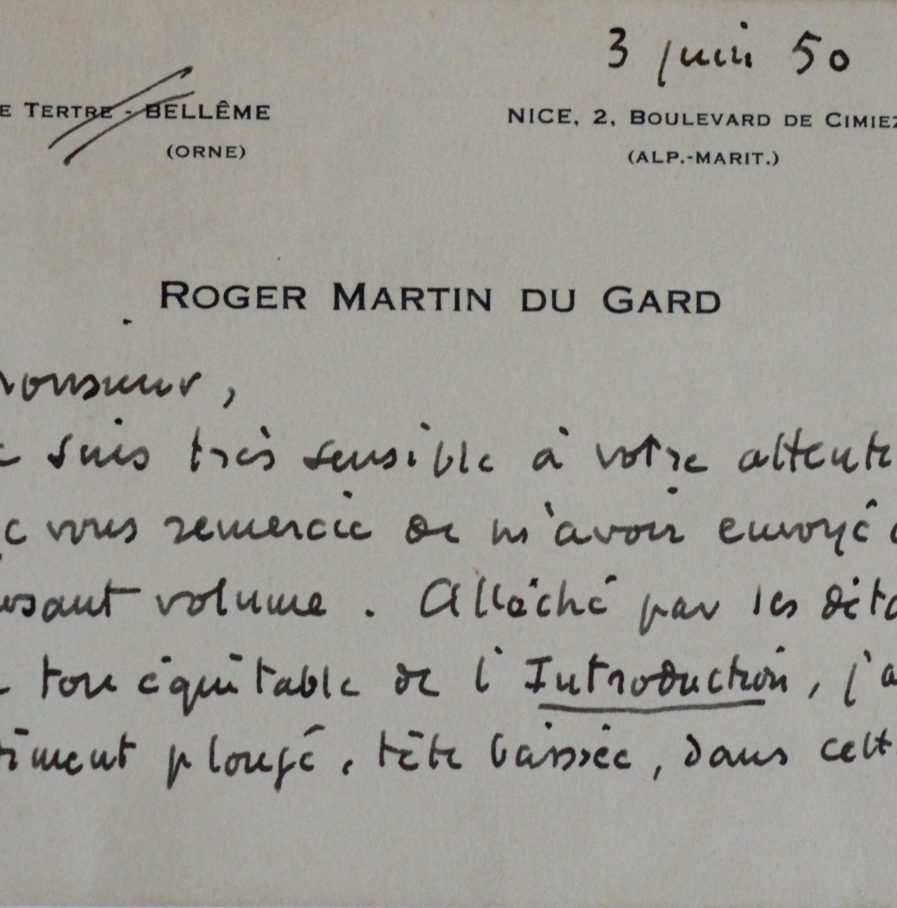 3 juin 50
E TERTRE - BELLÊME
(ORNE)
NICE, 2, BOULEVARD DE CIMIEZ
(ALP.-MARIT.)
ROGER MARTIN DU GARD
onsieur,
suis très sensible à votre attent
vous remercie de m'avoir envoyé
usant volume. Alléché par les déta
ton équitable de l'Introduction, j'a
timent plongé, tête baissée, dans cett